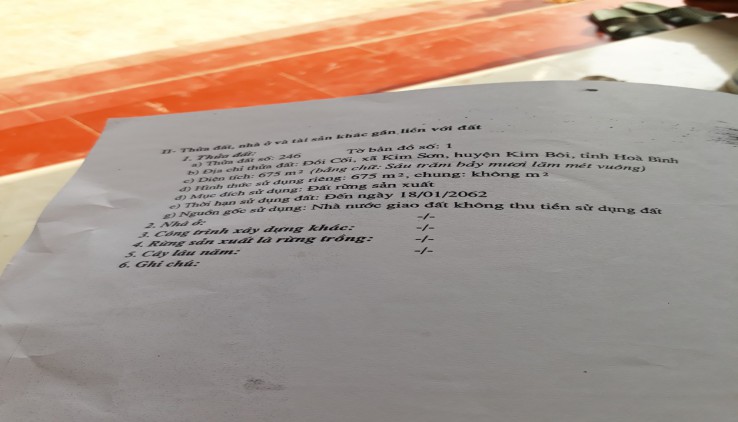 II- Thửa đất, nhà ở và tài sản khác gắn liền với đất
1. Thửa đất:
a) Thửa đất số: 246 Tờ bản đồ số: 1
b) Địa chỉ thửa đất: Đồi Cối, xã Kim Sơn, huyện Kim Bôi, tỉnh Hoà Bình
c) Diện tích: 675 m² (bằng chữ: Sáu trăm bảy mươi lăm mét vuông)
d) Hình thức sử dụng riêng: 675 m², chung: không m²
đ) Mục đích sử dụng: Đất rừng sản xuất
e) Thời hạn sử dụng đất: Đến ngày 18/01/2062
g) Nguồn gốc sử dụng: Nhà nước giao đất không thu tiền sử dụng đất
2. Nhà ở: -/-
3. Công trình xây dựng khác: -/-
4. Rừng sản xuất là rừng trồng: -/-
5. Cây lâu năm: -/-
6. Ghi chú: